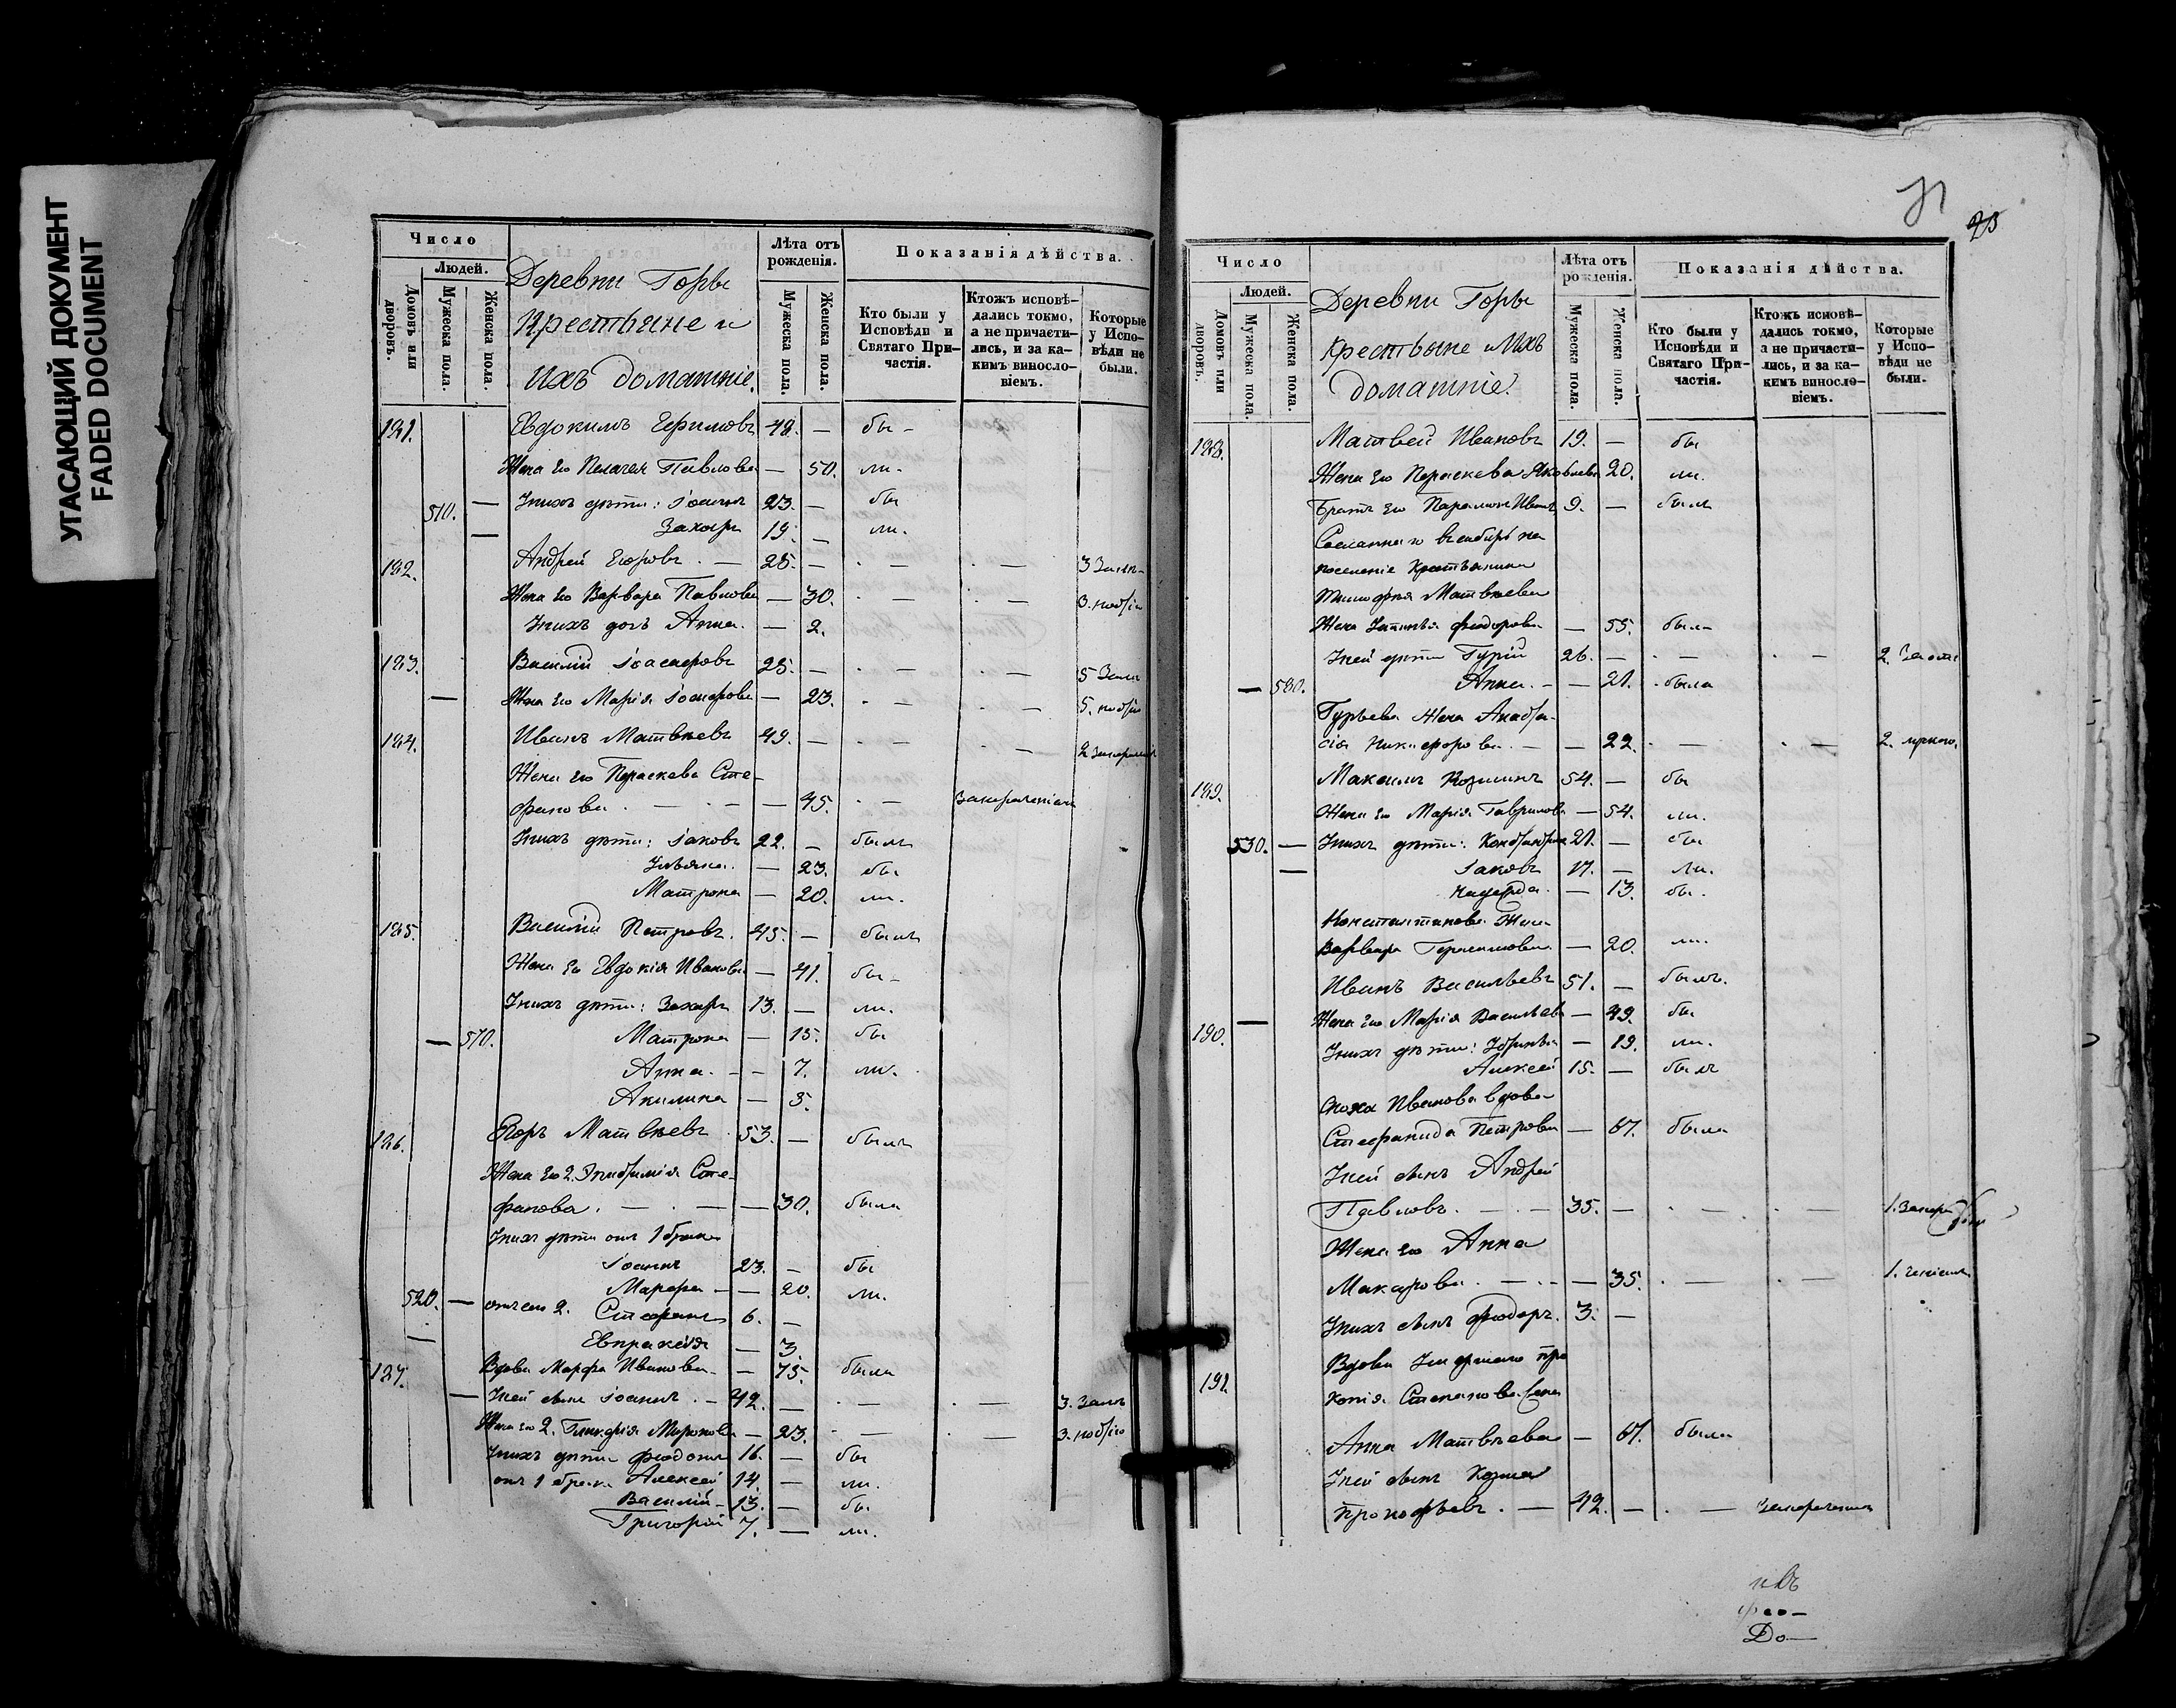 УГАСАЮЩИЙ ДОКУМЕНТ
FADED DOCUMENT
Число
Людей.
Домовъ или дворовъ.
Мужеска пола.
Женска пола.
Деревни Горы
Крестьяне и
Ихъ домашніе.
Лѣта отъ рожденія.
Мужеска пола.
Женска пола.
Показанія дѣйства.
Кто были у Исповѣди и Святаго При-частія.
Ктожъ исповѣ-дались токмо, а не причасти-лись, и за ка-кимъ винословіемъ.
Которые у Испо-вѣди не были.
181. Евдокимъ Ефимовъ 48. — бы-
Жена его Пелагея Павлова — 50. ли.
510. — Унихъ дѣти: Іоаннъ 23. — бы
— Захаръ 19. — ли.
182. Андрей Егоровъ . — 28. — . — . — 3
Жена его Варвара Павлова — 30. . — . — 3.
Унихъ дочь Анна. — 2.
183. Василій 25. — . — . — 5
— Жена его Марія — 23. . — . — 5.
184. Иванъ Матвѣевъ 49. — . — . — 2
Жена его Параскева Сте-
фанова . — . — — 45. . —
Унихъ дѣти: Іаковъ 22. — былъ
Ульяна. — 23. бы
Матрона — 20. ли.
185. Василій Петровъ. 45. — былъ
Жена его Евдокія Иванова — 41. бы-
Унихъ дѣти: Захаръ 13. — ли.
— 510. Матрона — 15. бы
Анна. - — 7. ли.
Акилина — 3.
186. Егоръ Матвѣевъ 53. — былъ
Жена его 2. Сте-
фанова . — . — — 30. была
Унихъ дѣти отъ 1 брака
Іоаннъ 23. — бы
Марфа - — 20. ли.
520. — отъ 2. Стефанъ 6. —
— Евпраксія — 3.
187. Вдова Марфа Иванова - — 75. была
— Уней сынъ Іоаннъ . - 42. — . — . — 3.
Жена его 2. Гликерія Миронова — 23. . — . — 3.
Унихъ дѣти 16. — бы
отъ 1 брака Алексей 14. — ли.
Василій - 13. — бы
Григорій 7. — ли.
Число
Людей.
Домовъ или дворовъ.
Мужеска пола.
Женска пола.
Деревни Горы
Крестьяне и Ихъ
домашніе.
Лѣта отъ рожденія.
Мужеска пола.
Женска пола.
Показанія дѣйства.
Кто были у Исповѣди и Святаго При-частія.
Ктожъ исповѣ-дались токмо, а не причасти-лись, и за ка-кимъ винословіемъ.
Которые у Испо-вѣди не были.
188. Матвей Ивановъ 19. — бы
Жена его Параскева Яковлева 20. ли.
Братъ его Парамонъ Ивановъ 9. — былъ
Сосланнаго въ сибирь на
поселеніе Крестьянина
Тимофея Матвѣева
Жена Ѳеодорова — 55. была
Уней дѣти Гурій 26. — . — . — 2.
— 580. Анна. - — 21. . была
Гурьева Жена Анаста-
сія Никифорова . — — 22. . — . — 2.
189. Максимъ Козминъ 54. — бы
Жена его Марія Гаврилова — 54. ли.
530. — Унихъ дѣти: 21. — бы
— Іаковъ 17. — ли.
Надежда. — 13. бы.
Константинова Жена
Варвара Герасимова — 20. ли.
Иванъ Васильевъ 51. — былъ.
190. — Жена его Марія Васильева — 49. бы
Унихъ дѣти: — 19. ли.
Алексей 15. — былъ
Сноха Иванова вдова
Стефанида Петрова — 67. была
Уней сынъ Андрей
Павловъ. — . — 35. — . — . — 1.
Жена его Анна
Макарова . — . - — 35. . — . — 1.
Унихъ сынъ Ѳеодоръ. 3. —
191. Вдова Умершаго Про
копія Степанова Жена
Анна Матвѣева — 67. была
Уней сынъ Козма
Прокофьевъ . — 42. — . —
До—